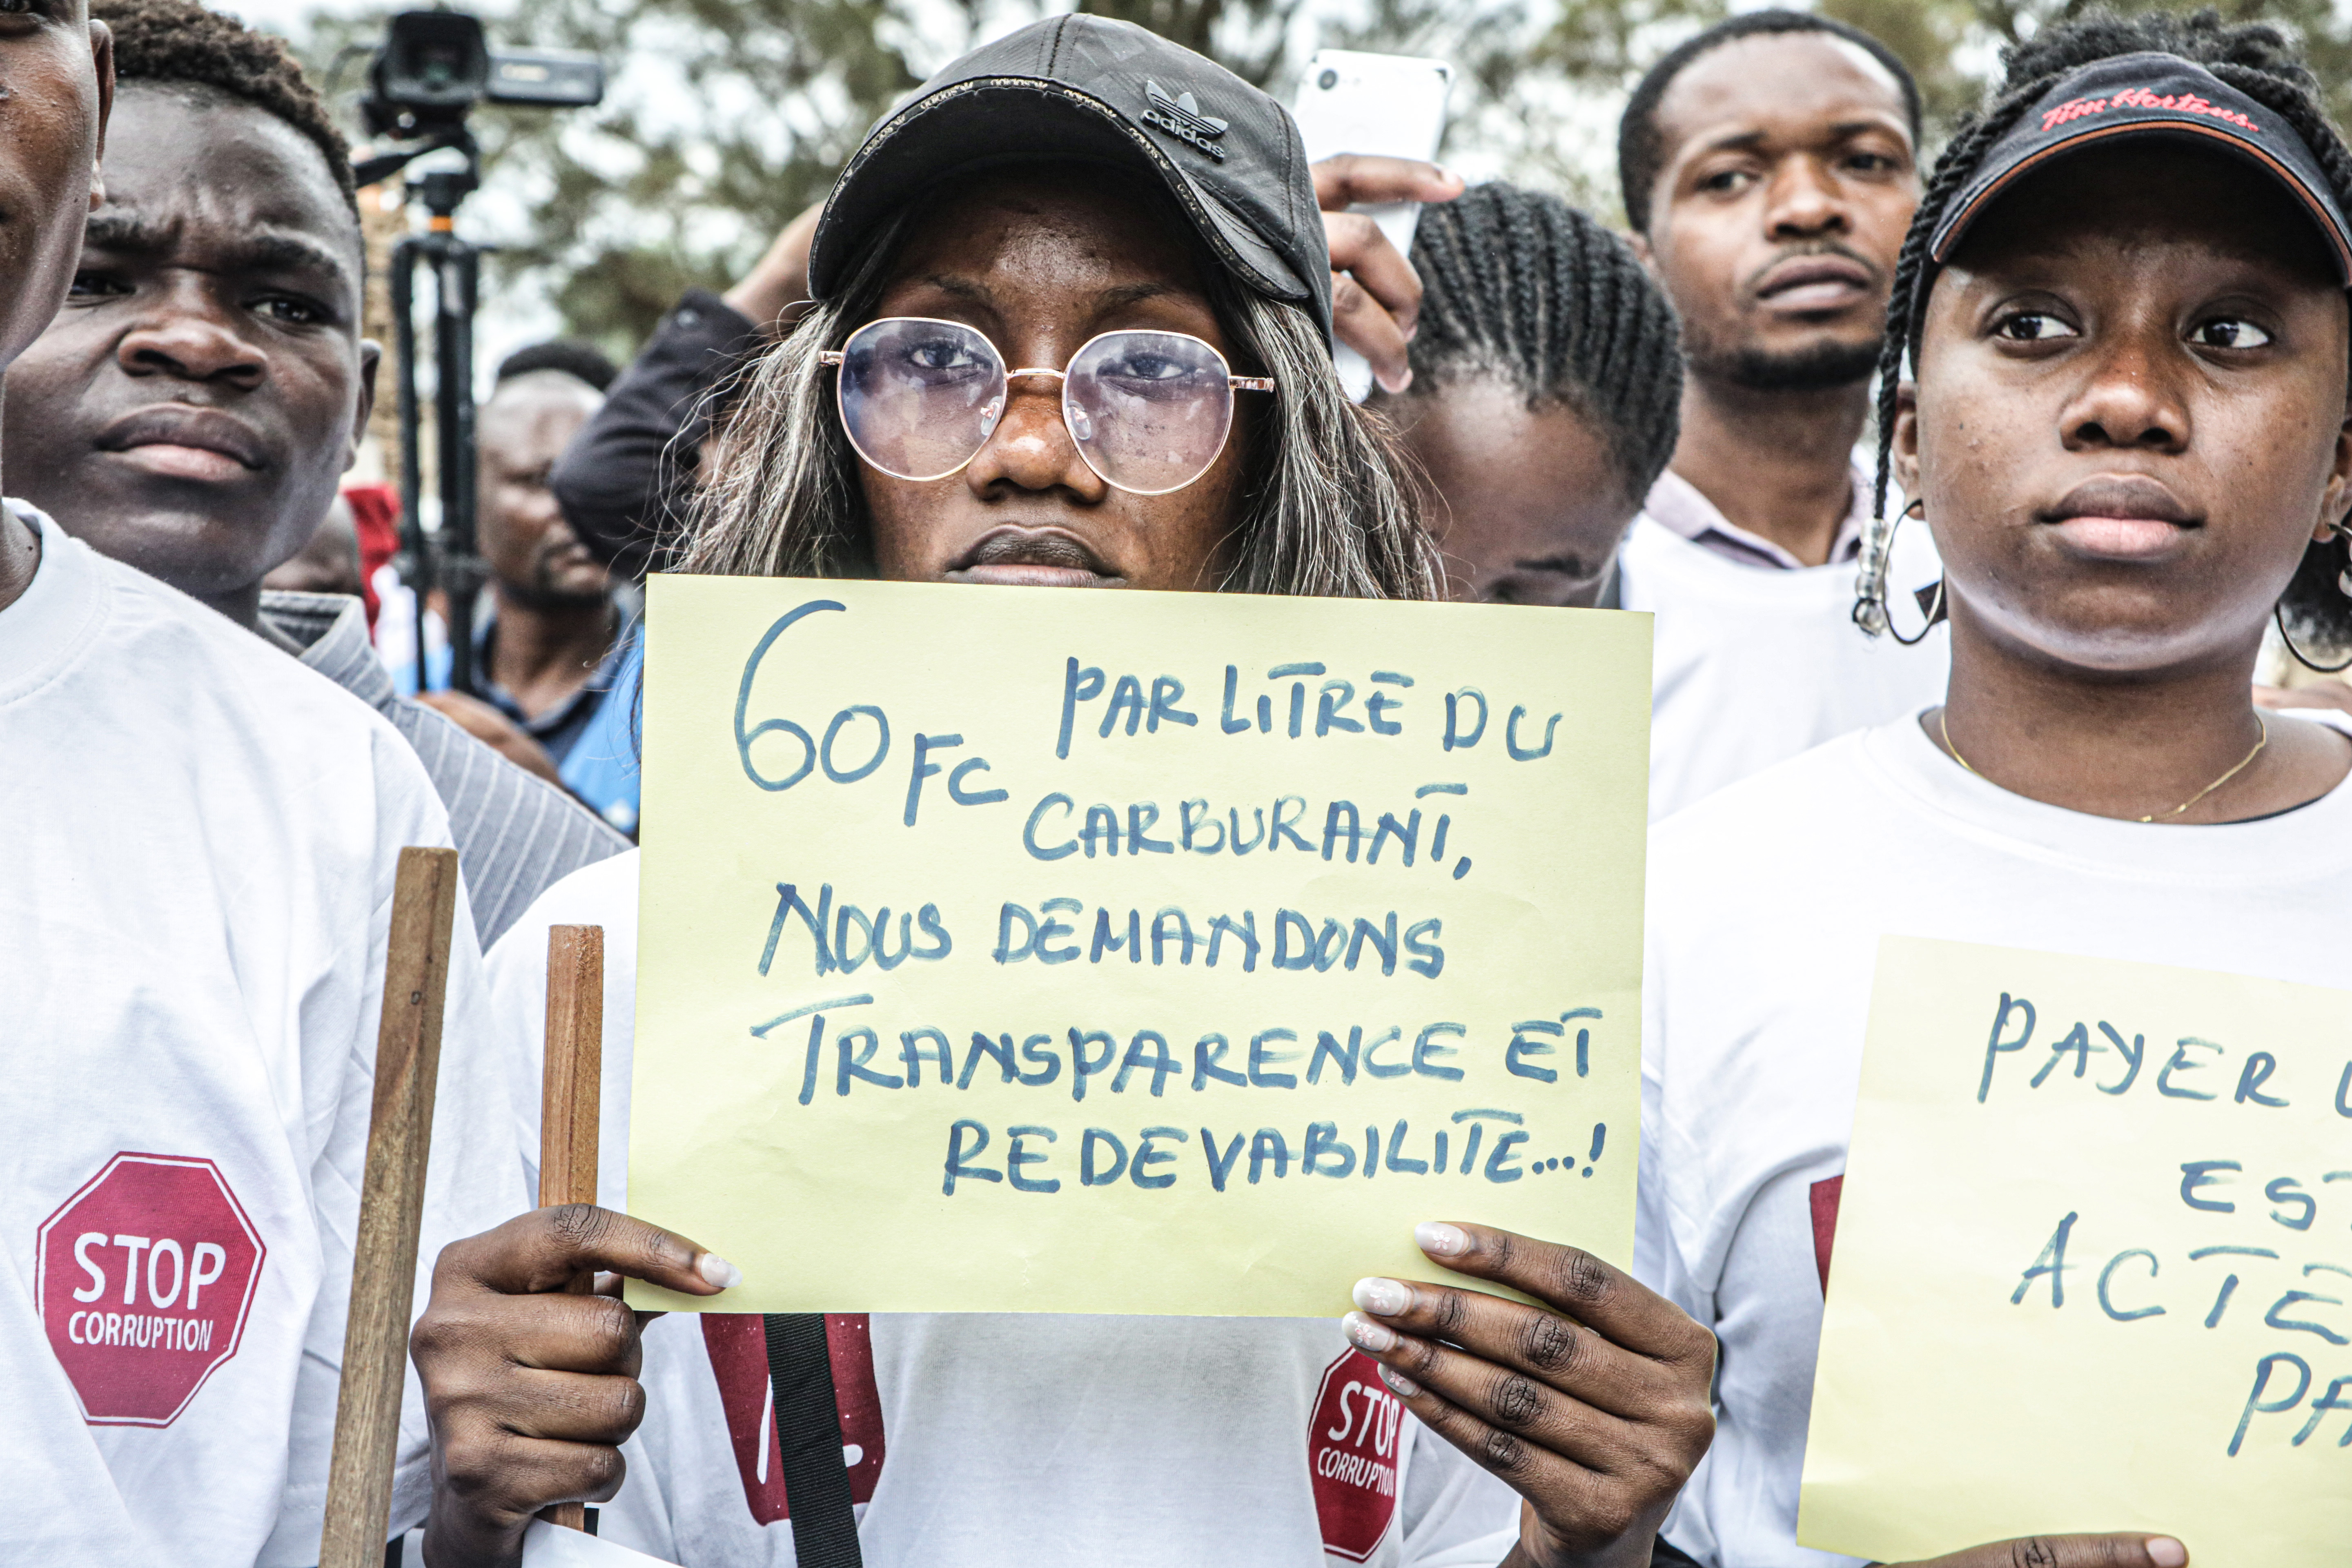 adidas
Tim Hortons
60 FC PAR LITRE DU
CARBURANT,
NOUS DEMANDONS
TRANSPARENCE ET
REDEVABILITE...!
PAYER
EST
ACTE
STOP
CORRUPTION
STOP
CORRUPTION